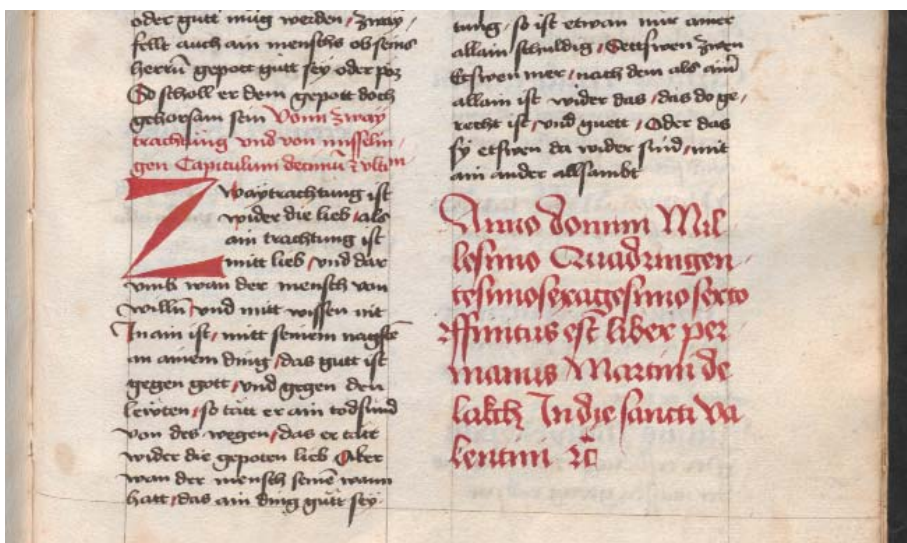 oder gutt müg werden / Zway,
fellt auch ain menschs ob seins
herrn̄ gepott gutt sey oder pöz
So scholl er dem gepott doch
gehorsam sein Vonn zway
trachtung vnd von misselin,
gen Capitulum decimū & vltim
Zwaytrachtung ist
wider die lieb / als
ain trachtung ist
mitt lieb / vnd dar
vmb wan der mensch von
willn̄ / vnd mitt wissen nit
In ain ist / mitt seinem nagstē
in ainem ding / das gutt ist
gegen gott / vnd gegen den
lewten / so tatt er ain todsund
von des wegen / das er tätt
wider die gepoten lieb Aber
wan der mensch seinē wann
hatt / das ain ding gütt sey
tung / so ist etwan nür ainer
allain schuldig / Ettswen zwen
Etswen mer / nach dem als ainē
allain ist wider das / das do ge,
recht ist / vnd guett / Oder das
sy etswen da wider sind / mit
ain ander allsambt
Anno domini Mil
lesimo Quadringen
tesimosexagesimosexto
ffinitus est̄ liber per
manus Martini de
In die sancti Va
lentini ꝛc̄